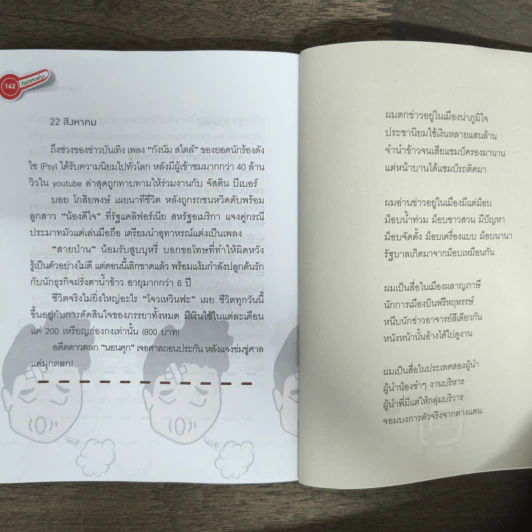 142
22 สิงหาคม
ถึงช่วงของข่าวบันเทิง เพลง "กังนัม สไตล์" ของยอดนักร้องดัง
ไซ (Psy) ได้รับความนิยมไปทั่วโลก หลังมีผู้เข้าชมมากกว่า 40 ล้าน
วิวใน youtube ล่าสุดถูกทาบทามให้ร่วมงานกับ จัสติน บีเบอร์
บอย โกสิยพงษ์ เผยนาทีชีวิต หลังถูกรถชนหวิดดับพร้อม
ลูกสาว "น้องดีใจ" ที่รัฐแคลิฟอร์เนีย สหรัฐอเมริกา แจงคู่กรณี
ประมาทมัวแต่เล่นมือถือ เตรียมนำอุทาหรณ์แต่งเป็นเพลง
"สายป่าน" น้อมรับสูบบุหรี่ บอกขอโทษที่ทำให้ผิดหวัง
รู้เป็นตัวอย่างไม่ดี แต่ตอนนี้เลิกขาดแล้ว พร้อมแง้มกำลังปลูกต้นรัก
กับนักธุรกิจฝรั่งตาน้ำข้าว อายุมากกว่า 6 ปี
ชีวิตจริงไม่ยิ่งใหญ่อะไร "โจวเหวินฟะ" เผย ชีวิตทุกวันนี้
ขึ้นอยู่กับการตัดสินใจของภรรยาทั้งหมด มีเงินใช้ในแต่ละเดือน
แค่ 200 เหรียญฮ่องกงเท่านั้น (800 บาท)
อดีตดาวตลก "นอนคุก" เจอศาลถอนประกัน หลังแจ้งข่มขู่ศาล
แต่มุกตลก!
ผมตกข่าวอยู่ในเมืองน่าภูมิใจ
ประชานิยมใช้เงินหลายแสนล้าน
จำนำข้าวจนเสียแชมป์ครองมานาน
แต่หน้าบานได้แชมป์รถติดมา
ผมอ่านข่าวอยู่ในเมืองมีแต่ม็อบ
ม็อบน้ำท่วม ม็อบชาวสวน มีปัญหา
ม็อบจัดตั้ง ม็อบเครื่องแบบ ม็อบนานา
รัฐบาลเกิดมาจากม็อบเหมือนกัน
ผมเป็นสื่อในเมืองผลาญภาษี
นักการเมืองบินฟรีหฤหรรษ์
หนีบนักข่าวอาจารย์สีเดียวกัน
หนังหน้านั้นอ้างได้ไปดูงาน
ผมเป็นสื่อในประเทศสองผู้นำ
ผู้นำน้องขำๆ งานบริหาร
ผู้นำพี่มีแต่ให้กลุ่มบริวาร
จอมบงการตัวจริงจากต่างแดน